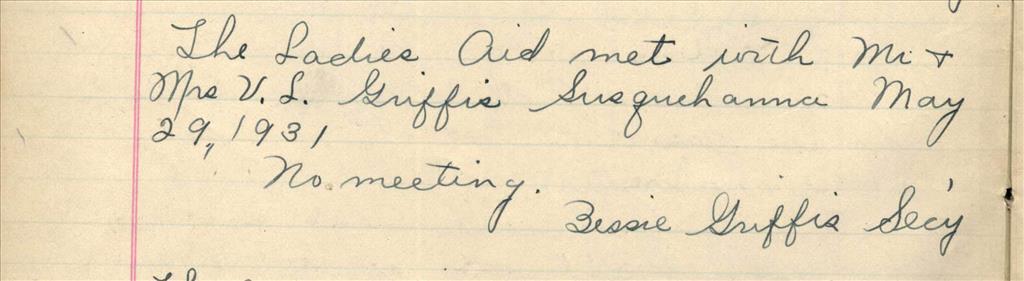 The Ladies Aid met with Mr &
Mrs V. L. Griffis Susquehanna May
29, 1931
No meeting.
Bessie Griffis Sec'y